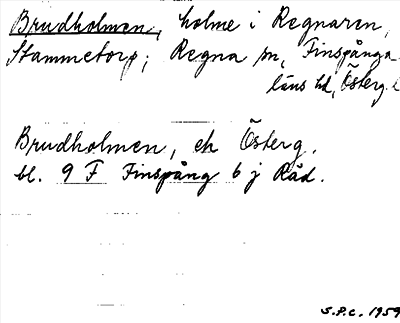 Brudholmen, holme i Regnaren,
Stammetorp; Regna sn, Finspånga
läns hd, Österg. l
Brudholmen, ek Österg.
bl. 9 F Finspång 6 j Råd.
S.P.C. 1959